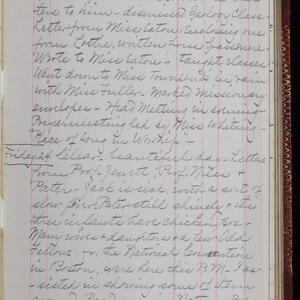 ters to him - dismissed Geology Class -
Letter from Miss Eaton, inclosing one
from Lottie, written from Grassmere
Wrote to Miss Eaton - taught classes
Went down to Miss Townsend's in rain
with Miss Fuller - Marked missionary
envelopes - Had Meeting in evening -
Prayer meeting led by Miss Whiting -
Place of Song in Worship -
Friday 24 Clear, beautiful day - Letters
from Prof. Jewett, Prof. Niles &
Peter - Jack is sick with a sort of
slow fever, Pat still shindy & the
three infants have chicken pox -
Many wives & daughters & a few Odd
Fellows, fr. the National Convention
in Boston, were here this P.M. I as-
sisted in showing some of them